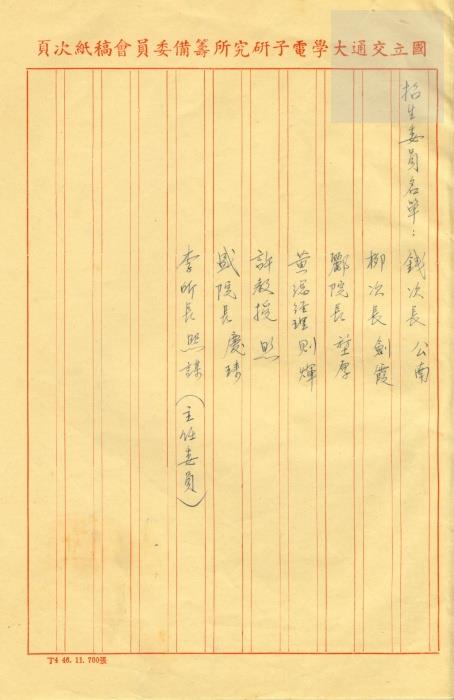 國立交通大學電子研究所籌備委員會稿紙次頁
招生委員名單：錢次長 公南
柳次長 劍霞
酈院長 堃厚
黃總經理 則煇
許教授 照
盛院長 慶琜
李所長 熙謀（主任委員）
丁4 46. 11. 700張